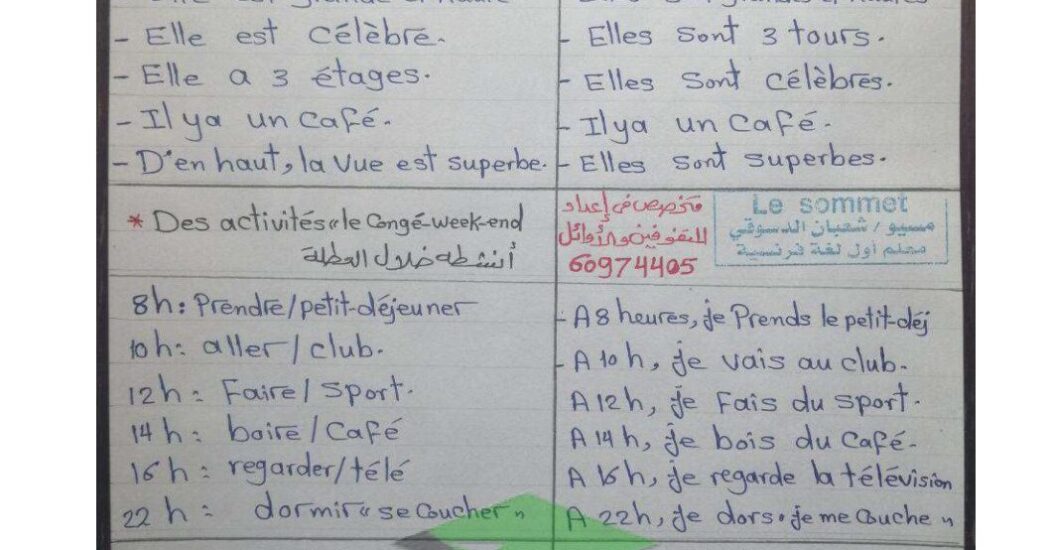 - Elle est célèbre.
- Elle a 3 étages.
- Il ya un café.
- D'en haut, la vue est superbe.
- Elles sont 3 tours.
- Elles sont célèbres.
- Il ya un café.
- Elles sont superbes.
* Des activités « le Congé-week-end
أنشطة خلال العطلة
متخصص فى إعداد
للمتفوقين والأوائل
60974405
Le sommet
مسيو / شعبان الدسوقي
معلم أول لغة فرنسية
8h: Prendre/petit-déjeuner
10h: aller/club.
12h: Faire/sport.
14h: boire/café
16h: regarder/télé
22h: dormir « se coucher »
- A 8 heures, je Prends le petit-déj
- A 10h, je vais au club.
A 12h, je Fais du sport.
A 14h, je bois du café.
A 16h, je regarde la télévision
A 22h, je dors. je me couche »